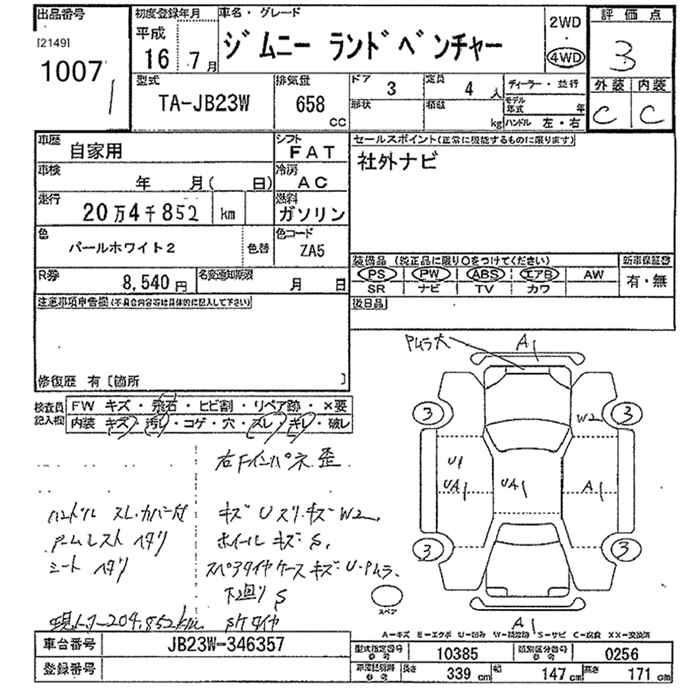 出品番号 初度登録年月 車名・グレード 2WD 評価点
[2149] 平成 ジムニー ランドベンチャー 4WD 3
1007 16年 7月
型式 排気量 ドア 定員 ディーラー・並行 外装 内装
TA-JB23W 658 cc 3 4人 モデル年式 年 C C
形状 積載 kg ハンドル 左・右
車歴 自家用 シフト FAT セールスポイント(正常に機能するものに限ります)
車検 年 月( 日) 冷房 AC 社外ナビ
走行 20万4千852 km 燃料 ガソリン
色 パールホワイト2 色替 色コード ZA5
装備品(純正品に限り○をつけてください) 新車保証書
R券 8,540円 名変通知期限 月 日 PS PW ABS エアB AW 有・無
SR ナビ TV カワ
注意事項申告欄(不具合内容等は具体的に記入して下さい) 後日品
修復歴 有〔箇所 〕
検査員記入欄 FW キズ・飛石・ヒビ割・リペア跡・×要
内装 キズ・汚れ・コゲ・穴・スレ・キレ・破レ
PムラX A1
3 W2 3
U1
UA1 UA1 A1
3 3
A1
スペア
右Fインパネ歪
ハンドル スレ・カバー付 キズ Uスリキズ W2、
アームレスト ヘタリ ホイール キズ S、
シート ヘタリ スペアタイヤケース キズ U・Pムラ、
下廻り S
204,852km
A-キズ E-エクボ U-凹み W-補修跡 S-サビ C-腐食 XX-交換済
車台番号 JB23W-346357 型式指定番号 10385 類別区分番号 0256
登録番号 長さ 339cm 幅 147cm 高さ 171cm